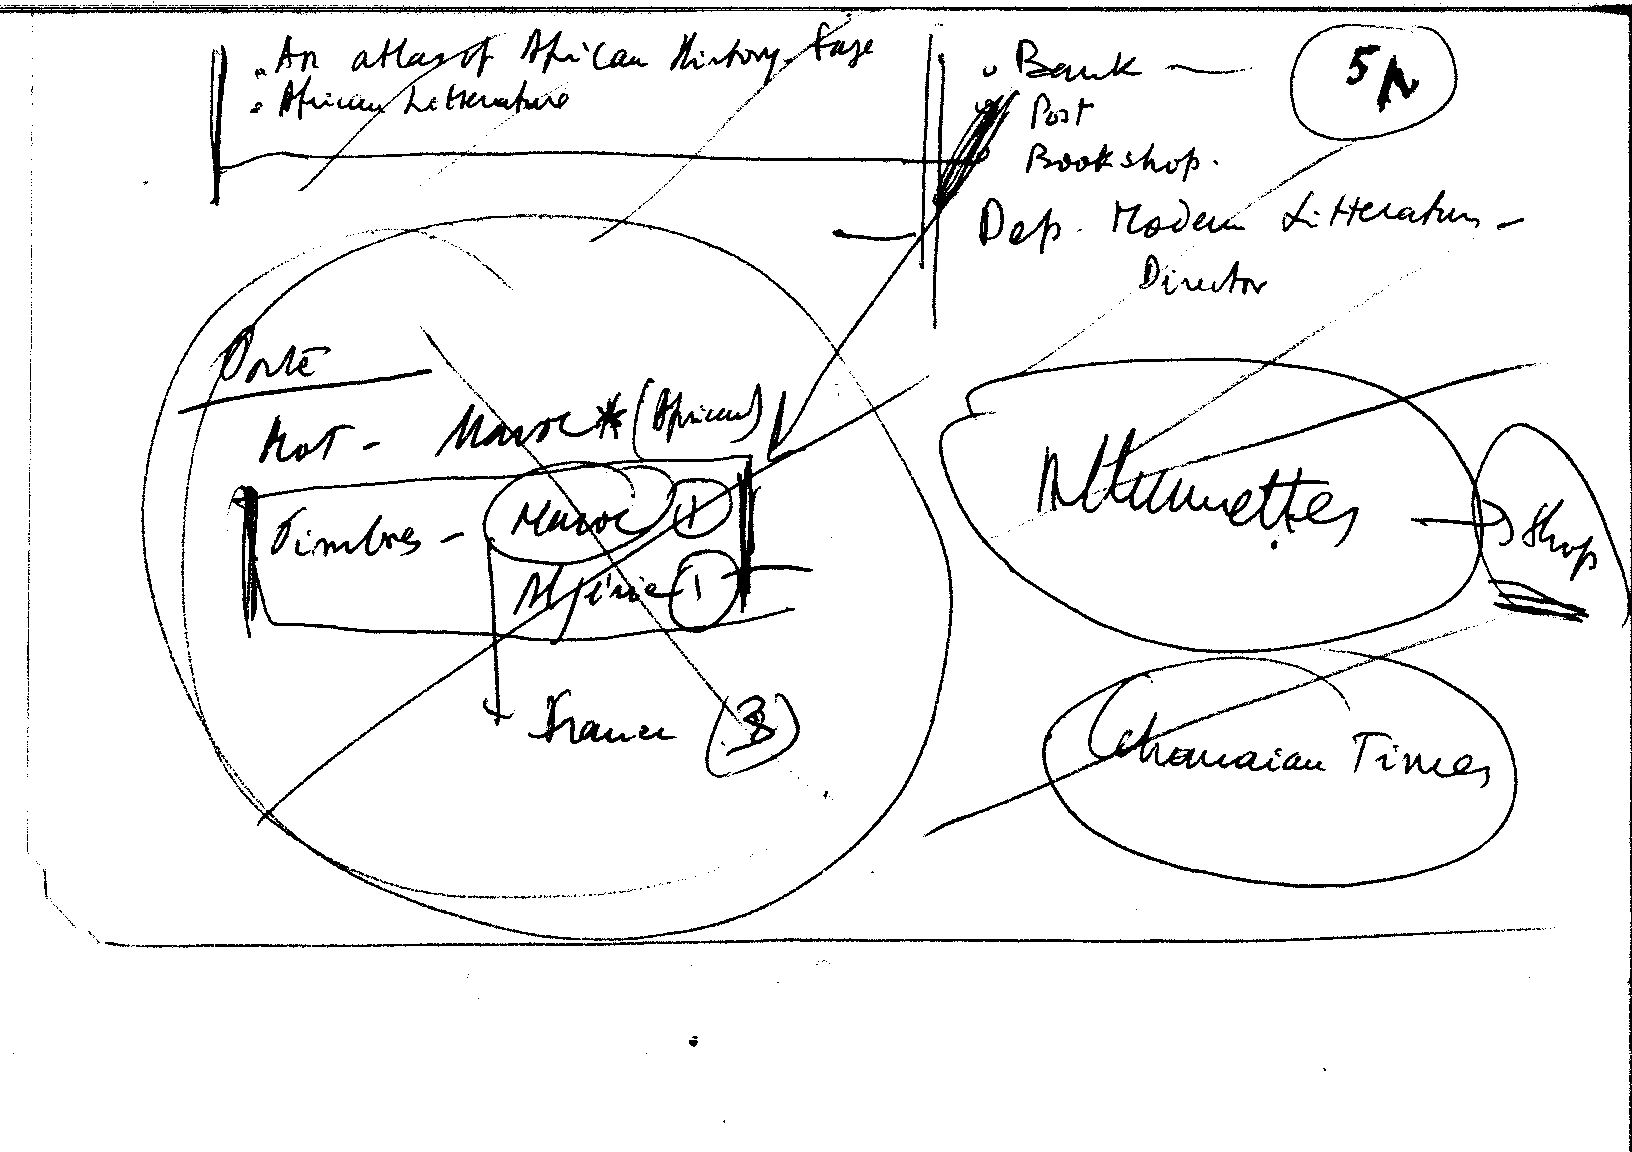 . An atlas of African History. Fage
. African Litterature
. Bank —
Post
Bookshop.
Dep. Modern Litterature -
Director
5
Poste
Mot - Maroc * (African)
Timbres - Maroc
Algérie 1
France 3
Allumettes → Shop
Ghanaian Times